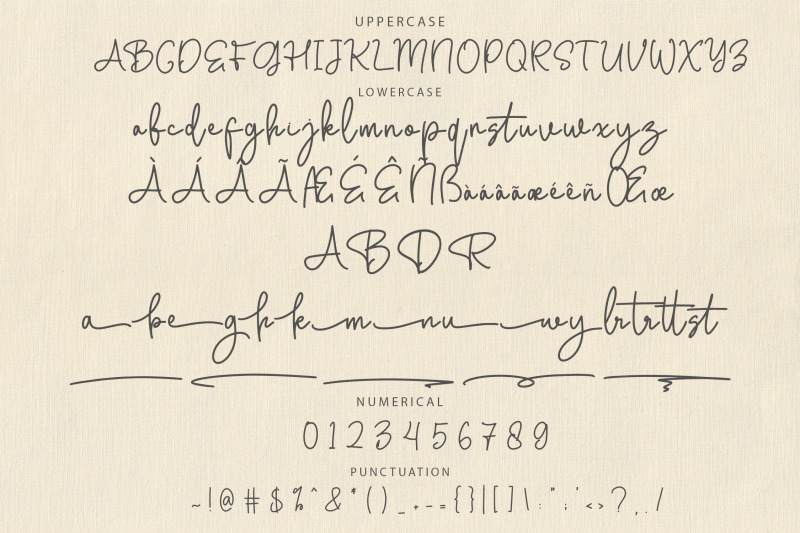 UPPERCASE
ABCDEFGHIJKLMNOPQRSTUVWXYZ
LOWERCASE
abcdefghijklmnopqrstuvwxyz
ÀÁÂÃÆÉÊÑßàáâãæéêñŒœ
ABDR
a be gh k m nu wy lrtrttst
NUMERICAL
0123456789
PUNCTUATION
~!@#$%^&*()_+-={}|[]\:";'<>?,./